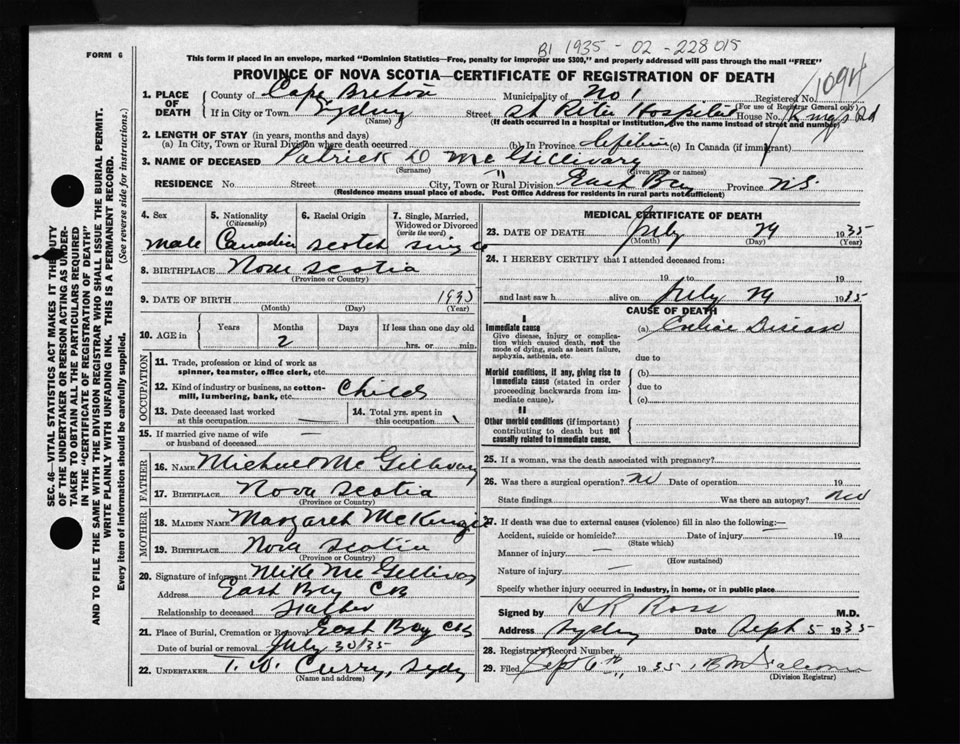 B1 1935 - 02 - 228015
FORM 6
This form if placed in an envelope, marked "Dominion Statistics—Free, penalty for improper use $300," and properly addressed will pass through the mail "FREE"
PROVINCE OF NOVA SCOTIA—CERTIFICATE OF REGISTRATION OF DEATH
1094
1. PLACE OF DEATH County of Cape Breton Municipality of No 1 Registered No.
(For use of Registrar General only)
If in City or Town Sydney Street St Rita Hospital House No. Kings Rd
(Name) (If death occurred in a hospital or institution, give the name instead of street and number)
2. LENGTH OF STAY (in years, months and days)
(a) In City, Town or Rural Division where death occurred (b) In Province Lifetime (c) In Canada (if immigrant)
3. NAME OF DECEASED Patrick D McGillivary
(Surname) (Given name or names)
RESIDENCE No. Street City, Town or Rural Division East Bay Province N.S.
(Residence means usual place of abode. Post Office Address for residents in rural parts not sufficient)
SEC. 46—VITAL STATISTICS ACT MAKES IT THE DUTY
OF THE UNDERTAKER OR PERSON ACTING AS UNDER-
TAKER TO OBTAIN ALL THE PARTICULARS REQUIRED
IN THE "CERTIFICATE OF REGISTRATION OF DEATH"
AND TO FILE THE SAME WITH THE DIVISION REGISTRAR WHO SHALL ISSUE THE BURIAL PERMIT.
WRITE PLAINLY WITH UNFADING INK. THIS IS A PERMANENT RECORD.
Every item of information should be carefully supplied. (See reverse side for instructions.)
4. Sex 5. Nationality (Citizenship) 6. Racial Origin 7. Single, Married, Widowed or Divorced (write the word)
male Canadia Scotch Single
8. BIRTHPLACE Nova Scotia
(Province or Country)
9. DATE OF BIRTH 1935
(Month) (Day) (Year)
10. AGE in Years Months Days If less than one day old
2 hrs. or min.
OCCUPATION
11. Trade, profession or kind of work as spinner, teamster, office clerk, etc.
12. Kind of industry or business, as cotton-mill, lumbering, bank, etc. Child
13. Date deceased last worked at this occupation — 14. Total yrs. spent in this occupation
15. If married give name of wife or husband of deceased —
FATHER
16. NAME Michael McGillivary
17. BIRTHPLACE Nova Scotia
(Province or Country)
MOTHER
18. MAIDEN NAME Margaret McKenzie
19. BIRTHPLACE Nova Scotia
(Province or Country)
20. Signature of informant Mike McGillivary
Address East Bay CB
Relationship to deceased Father
21. Place of Burial, Cremation or Removal East Bay CB
Date of burial or removal July 30/35
22. UNDERTAKER T. W. Curry, Sydney
(Name and address)
MEDICAL CERTIFICATE OF DEATH
23. DATE OF DEATH July 29 1935
(Month) (Day) (Year)
24. I HEREBY CERTIFY that I attended deceased from:
19 to 19
and last saw h alive on July 29 1935
CAUSE OF DEATH
I
Immediate cause (a) Disease
Give disease, injury or complication which caused death, not the mode of dying, such as heart failure, asphyxia, asthenia, etc. due to
Morbid conditions, if any, giving rise to immediate cause (stated in order proceeding backwards from immediate cause). (b)
due to
(c)
II
Other morbid conditions (if important) contributing to death but not causally related to immediate cause.
25. If a woman, was the death associated with pregnancy?
26. Was there a surgical operation? no Date of operation 19
State findings Was there an autopsy? no
27. If death was due to external causes (violence) fill in also the following:—
Accident, suicide or homicide? Date of injury 19
(State which)
Manner of injury —
(How sustained)
Nature of injury —
Specify whether injury occurred in industry, in home, or in public place
Signed by H R Ross M.D.
Address Sydney Date Sept 5 1935
28. Registrar's Record Number
29. Filed Sept 6th 1935
(Division Registrar)